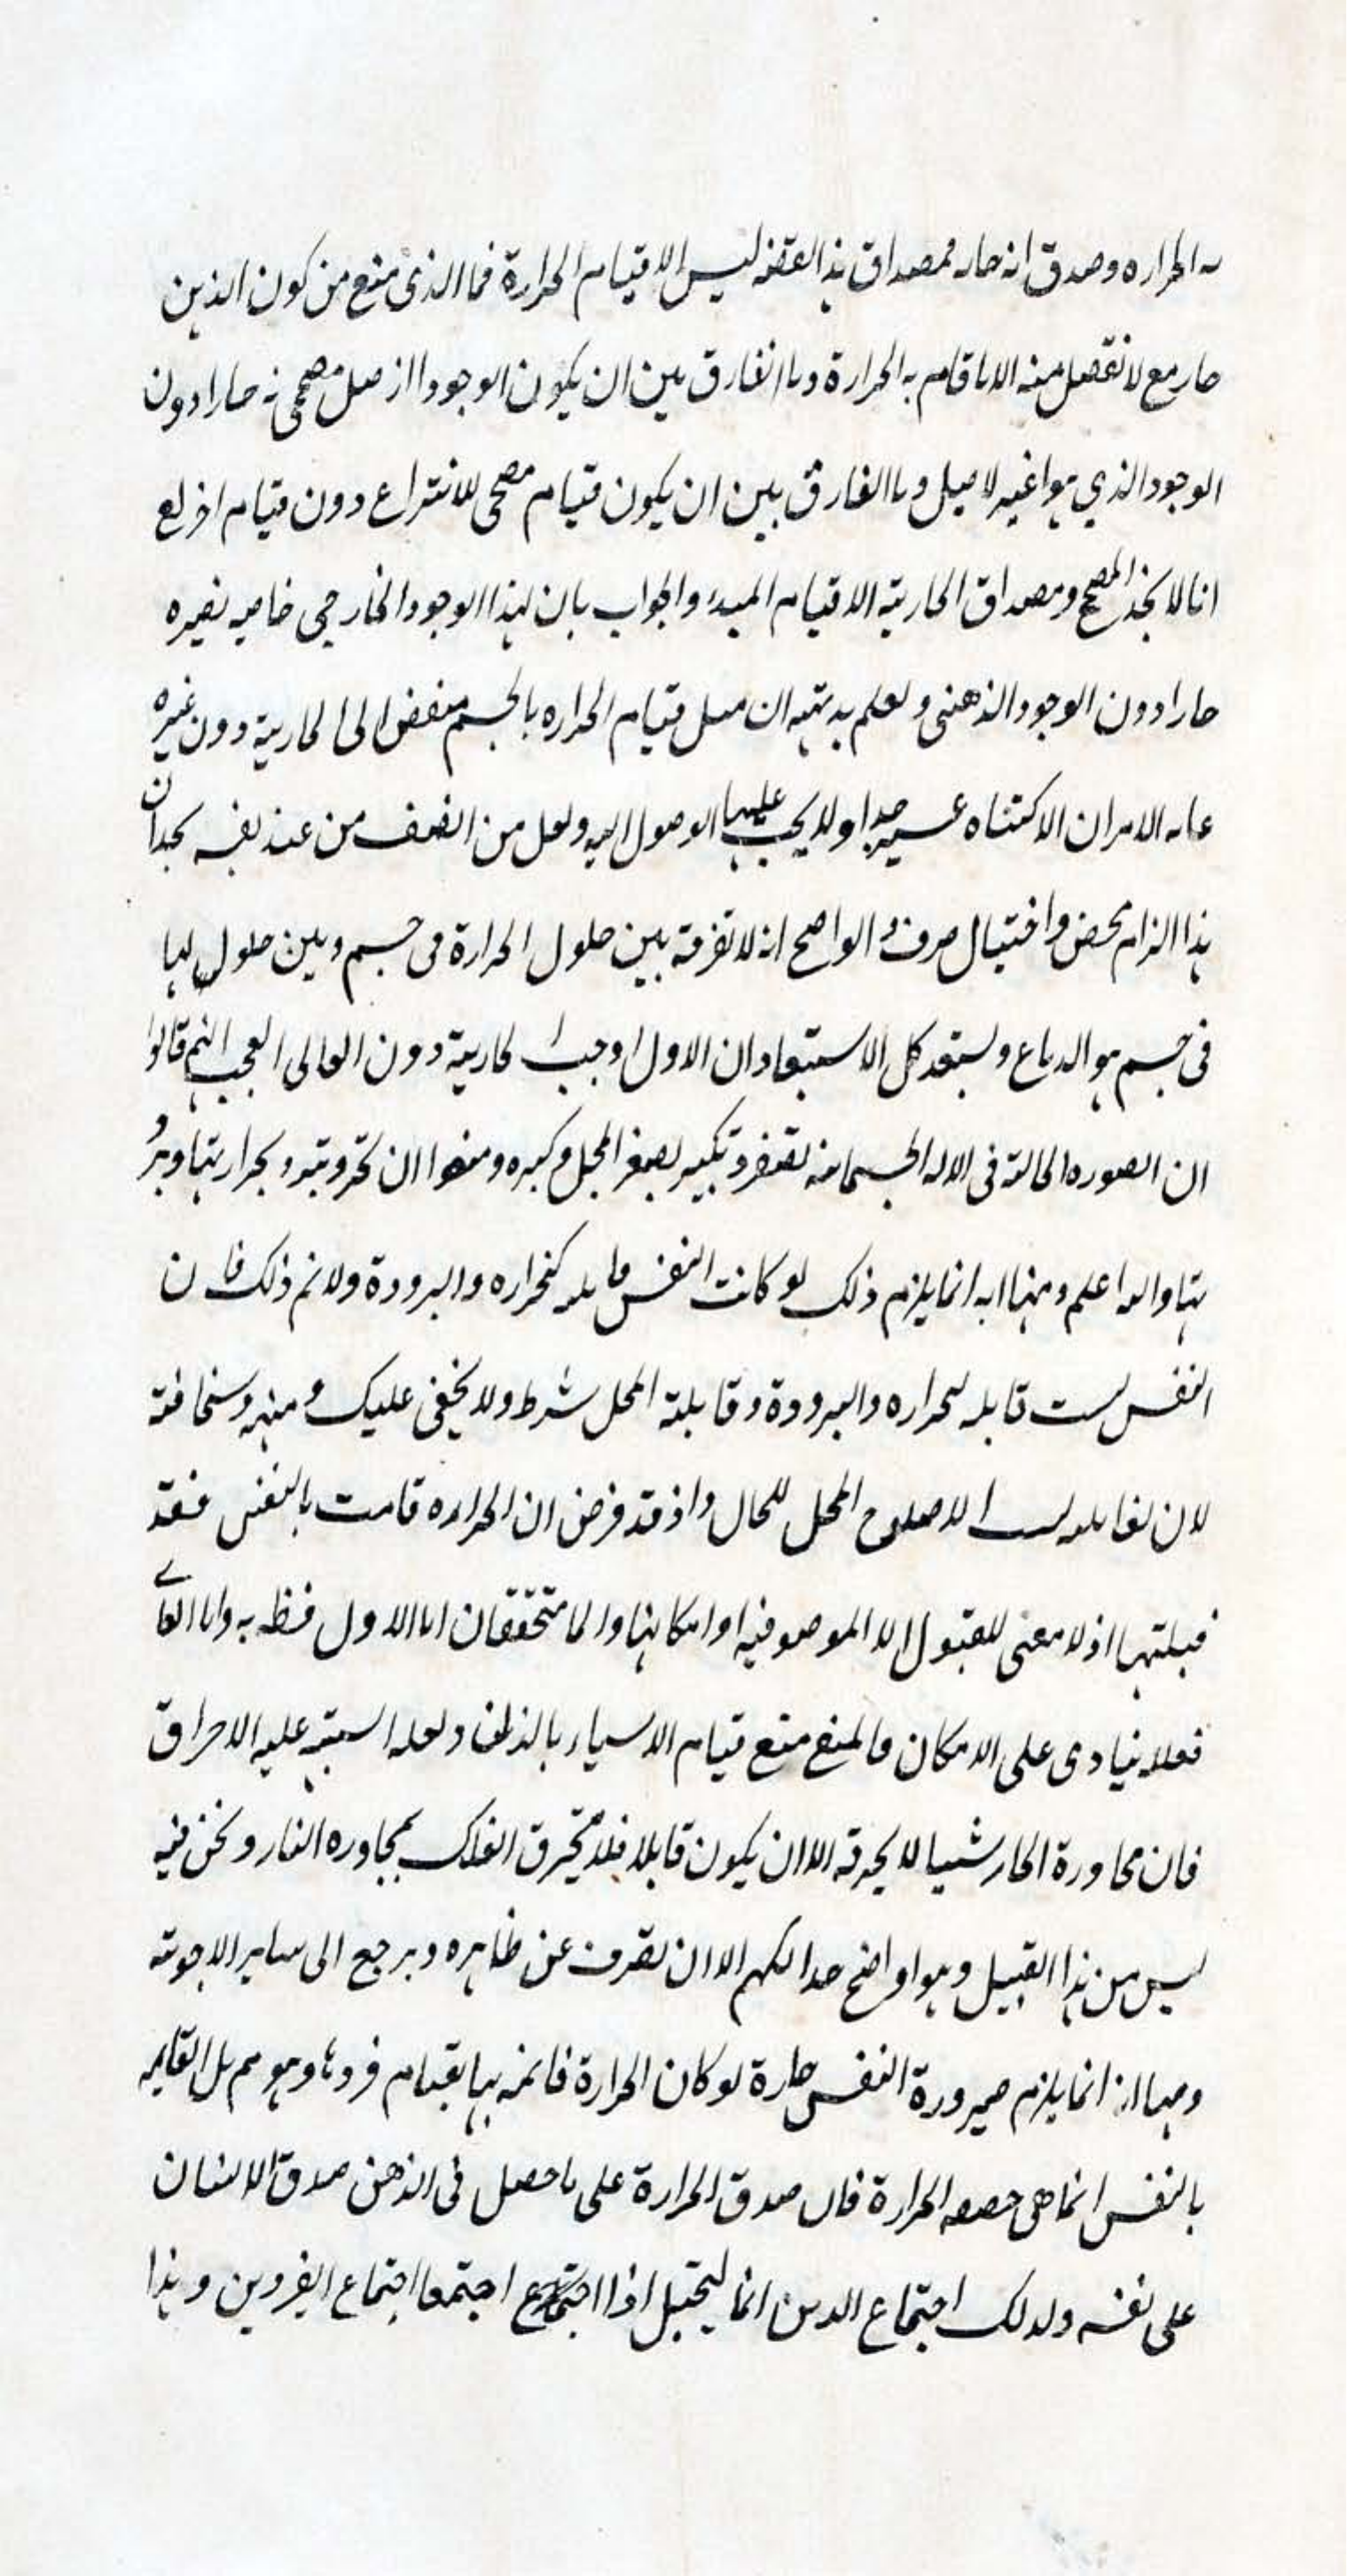 به الحراره وصدق انه حار فمصداق هذا العقد ليس الا قيام الحرارة فما الذى منع من كون الذهن
حار مع لا نعقل منه الا ما قام به الحرارة وما الفارق بين ان يكون الوجود الاصيل مصححى نه حارا دون
الوجود الذي هو اغير لاصيل وما الفارق بين ان يكون قيام مصححى للانتزاع دون قيام اخر مع
انا لا نجد المصحح ومصداق الحارية الا قيام المبدء والجواب بان لهذا الوجود الخارجى خاصيه تصيره
حارا دون الوجود الذهنى ولعلم بديهيه ان مثل قيام الحراره بالجسم مفض الى الحارية دون غيره
غايه الامر ان الاكتناه عسير جدا ولا يجب علينا الوصول اليه ولعل من انصف من عند نفسه يجد ان
هذا الزام محض واختيال صرف و الواضح انه لا تفرقة بين حلول الحرارة فى جسم وبين حلول لها
فى جسم هو الدماغ ويستبعد كل الاستبعاد ان الاول اوجب الحارية دون الثانى العجب انهم قالوا
ان الصوره الحالة فى الاله الجسمانيه تصغر وتكبير بصغر المحل وكبره ومنعوا ان تحر وتبرد بحرارتها وبرو
دتها والله اعلم ومنها انه انما يلزم ذلك لو كانت النفس قابله كنحراره والبرودة ولا نم ذلك فان
النفس ليست قابله لحراره والبرودة وقابلية المحل شرط ولا يخفى عليك وهنه وسخافته
لان لقابليه ليست الا صلوح المحل للحال واذ قد فرض ان الحراره قامت بالنفس فقد
قبلتها اذ لا معنى للقبول الا الموصوفيه او امكانها والما متحققان اما الاول فظ به واما الثا
فعلا ينادى على الامكان فالمنع منع قيام الاشياء بالذهن ولعله اشتبه عليه الاحراق
فان مجاورة الحار شيا لا يحرقه الا ان يكون قابلا فلا يحرق الفلك بمجاوره النار ونحن فيه
ليس من هذا القبيل وهو اواضح جدا اللهم الا ان يصرف عن ظاهره ويرجع الى ساير الاجوبة
ومنها انه انما يلزم صيرورة النفس حارة لو كان الحرارة قائمه بها بقيام فردها وهو مم بل القايم
بالنفس انما هى حصه الحرارة فان صدق الحرارة على ما حصل فى الذهن صدق الانسان
على نفسه ولذلك اجتماع الضدين انما يستحيل اذا اجتمعا اجتماع الفردين وهذا